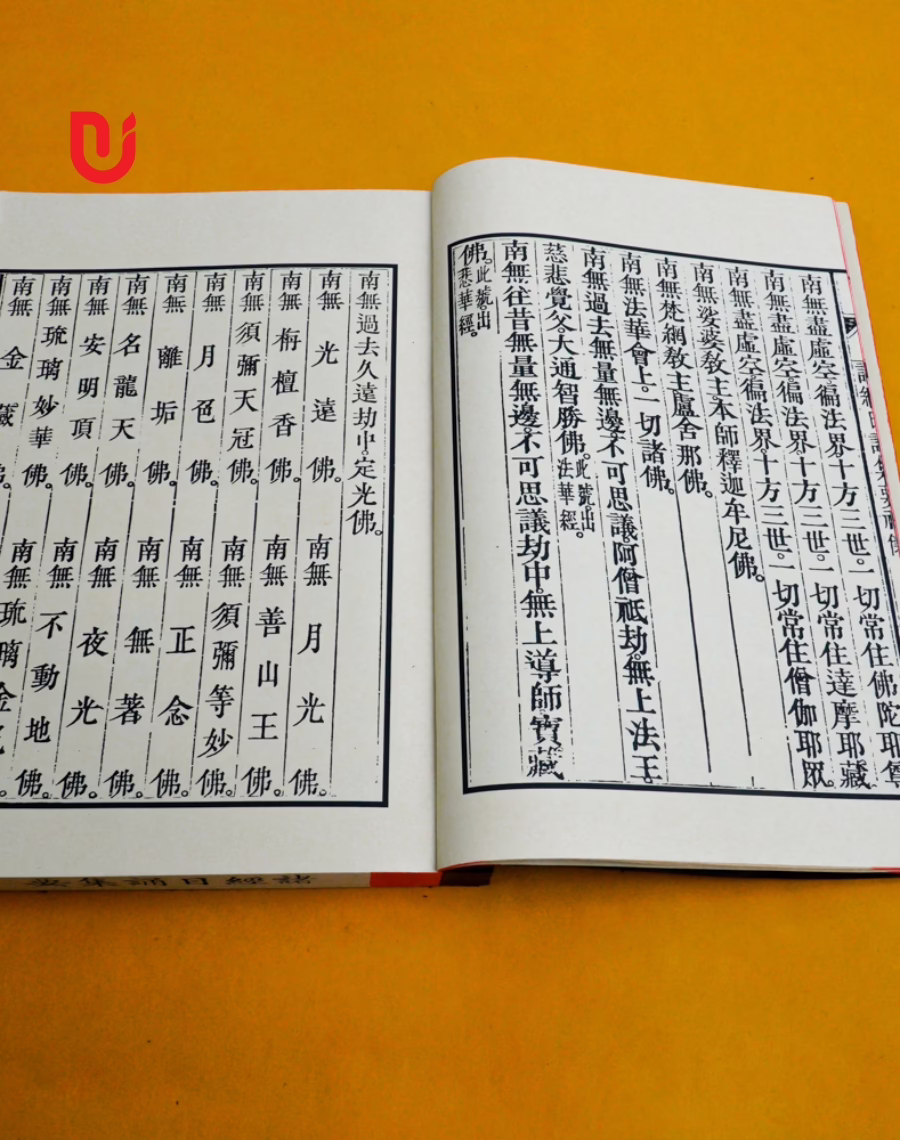 南無盡虛空徧法界十方三世。一切常住佛陀耶尊
南無盡虛空徧法界十方三世。一切常住達摩耶藏
南無盡虛空徧法界十方三世。一切常住僧伽耶眾。
南無娑婆教主本師釋迦牟尼佛。
南無梵網教主盧舍那佛。
南無法華會上。一切諸佛。
南無過去無量無邊不可思議阿僧祇劫。無上法王
慈悲覺父。大通智勝佛。此號出法華經。
南無往昔無量無邊。不可思議劫中。無上導師寶藏
佛。此號出悲華經。
南無過去久遠劫中。定光佛。
南無光遠佛。南無月光佛。
南無栴檀香佛。南無善山王佛。
南無須彌天冠佛。南無須彌等妙佛。
南無月色佛。南無正念佛。
南無離垢佛。南無無著佛。
南無名龍天佛。南無夜光佛。
南無安明頂佛。南無不動地佛。
南無琉璃妙華佛。南無琉璃金
南無金藏
諸經日誦集要